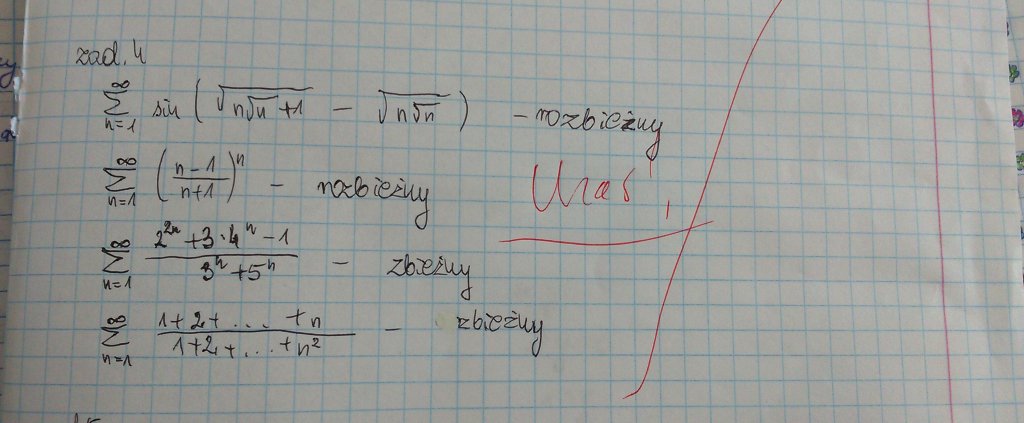 zad. 4
∑_{n=1}^{∞} sin ( √(n√n + 1) − √(n√n) ) - rozbieżny
∑_{n=1}^{∞} ( (n-1)/(n+1) )^n - rozbieżny
∑_{n=1}^{∞} (2^{2n} + 3·4^n - 1)/(3^n + 5^n) - zbieżny
∑_{n=1}^{∞} (1+2+ ... +n)/(1+2+ ... +n²) - zbieżny